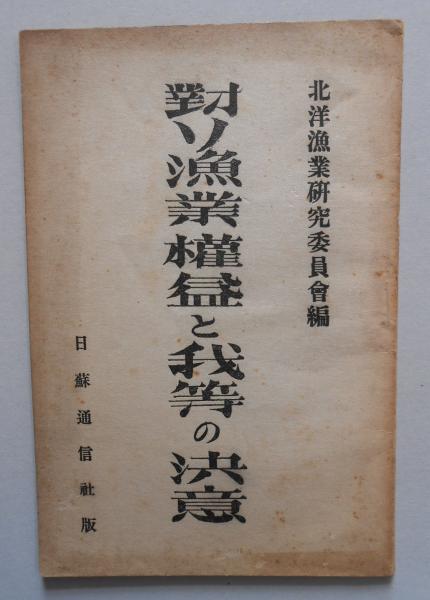 北洋漁業研究委員會編
對ソ漁業權益と我等の決意
日蘇通信社版